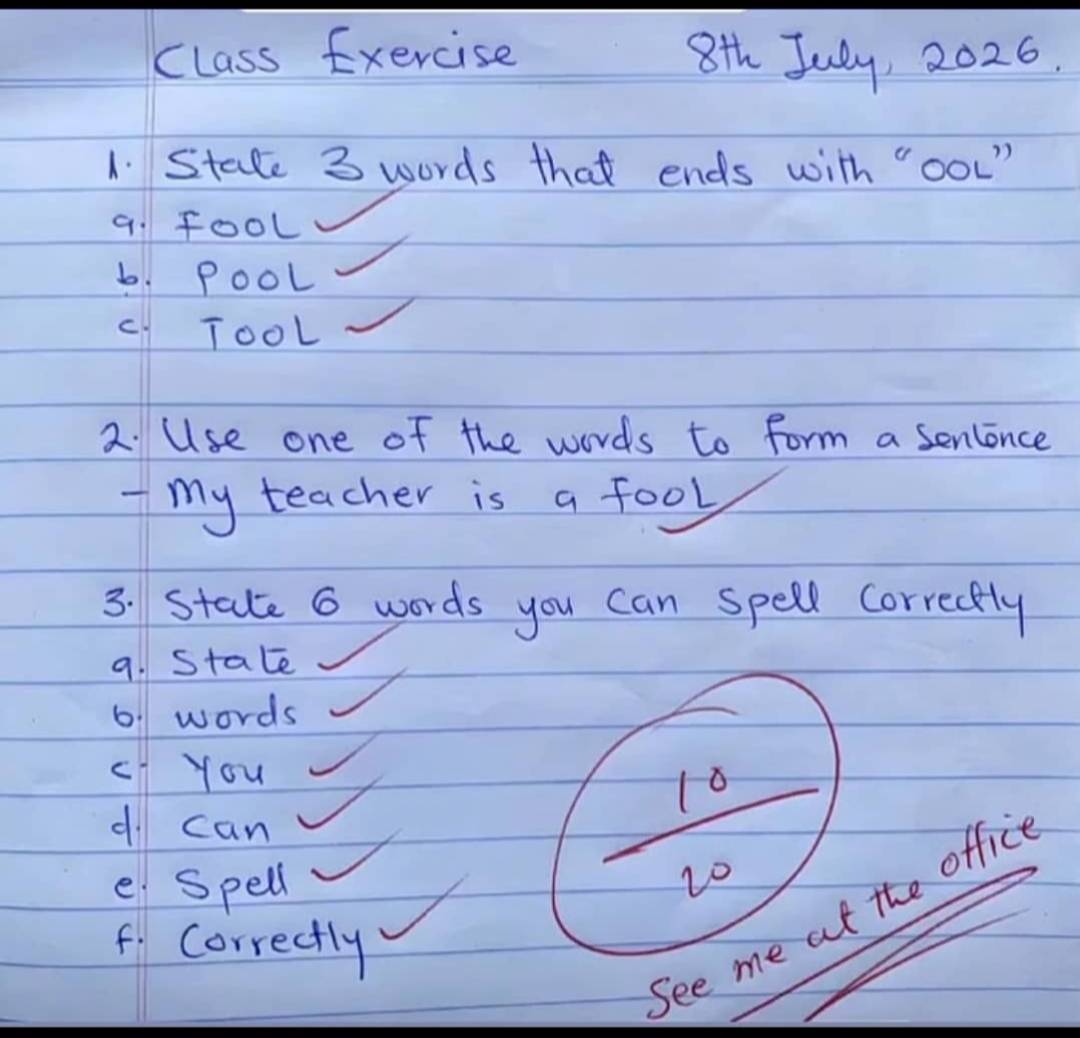 Class Exercise 8th July, 2026.
1. State 3 words that ends with "OOL"
a. FOOL
b. POOL
c. TOOL
2. Use one of the words to form a sentence
- My teacher is a fool
3. State 6 words you can spell correctly
a. State
b. words
c. You
d. can
e. Spell
f. Correctly
10
20
See me at the office